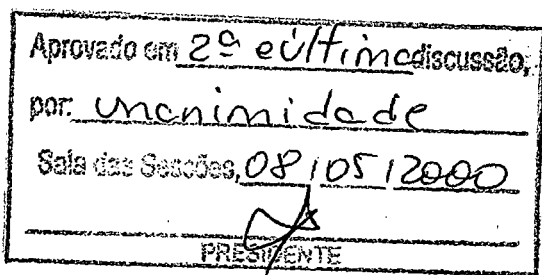 Aprovado em 2ª e última discussão,
por: unanimidade
Sala das Sessões, 08/05/2000
PRESIDENTE